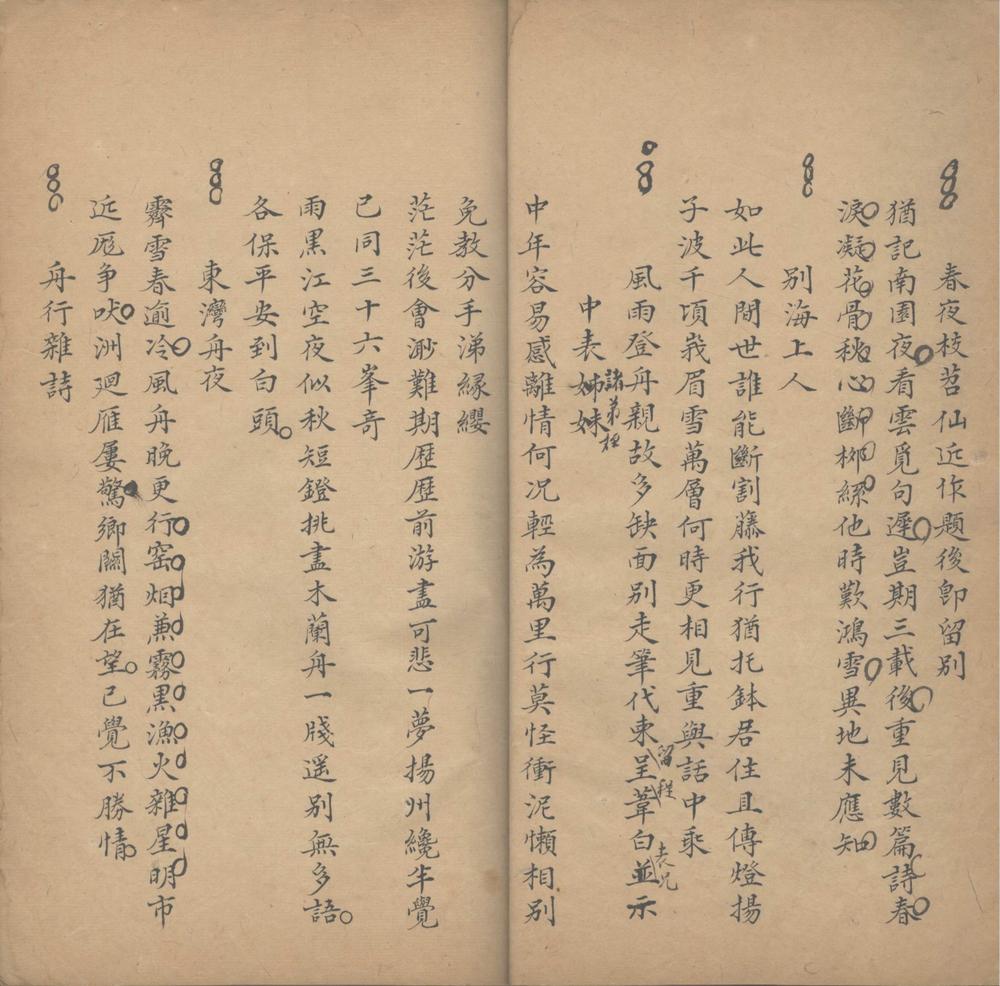 春夜枝苕仙近作題後卽留別
猶記南園夜看雲覓句遲豈期三載後重見數篇詩春
淚凝花骨秋心斷柳絲他時歎鴻雪異地未應知
別海上人
如此人間世誰能斷割藤我行猶托鉢君住且傳燈揚
子波千頃峩眉雪萬層何時更相見重與話中乘
風雨登舟親故多缺面別走筆代柬呈葦白並示
留程
表兄
中表姊妹
諸弟程
中年容易感離情何况輕為萬里行莫怪衝泥懶相別
免教分手涕緣纓
茫茫後會渺難期歷歷前游盡可悲一夢揚州纔半覺
已同三十六峯奇
雨黑江空夜似秋短鐙挑盡木蘭舟一牋遥別無多語
各保平安到白頭
東灣舟夜
霽雪春逾冷風舟晚更行窑烟兼霧黑漁火雜星明市
近厖争吠洲廻雁屢驚鄉關猶在望已覺不勝情
舟行雜詩